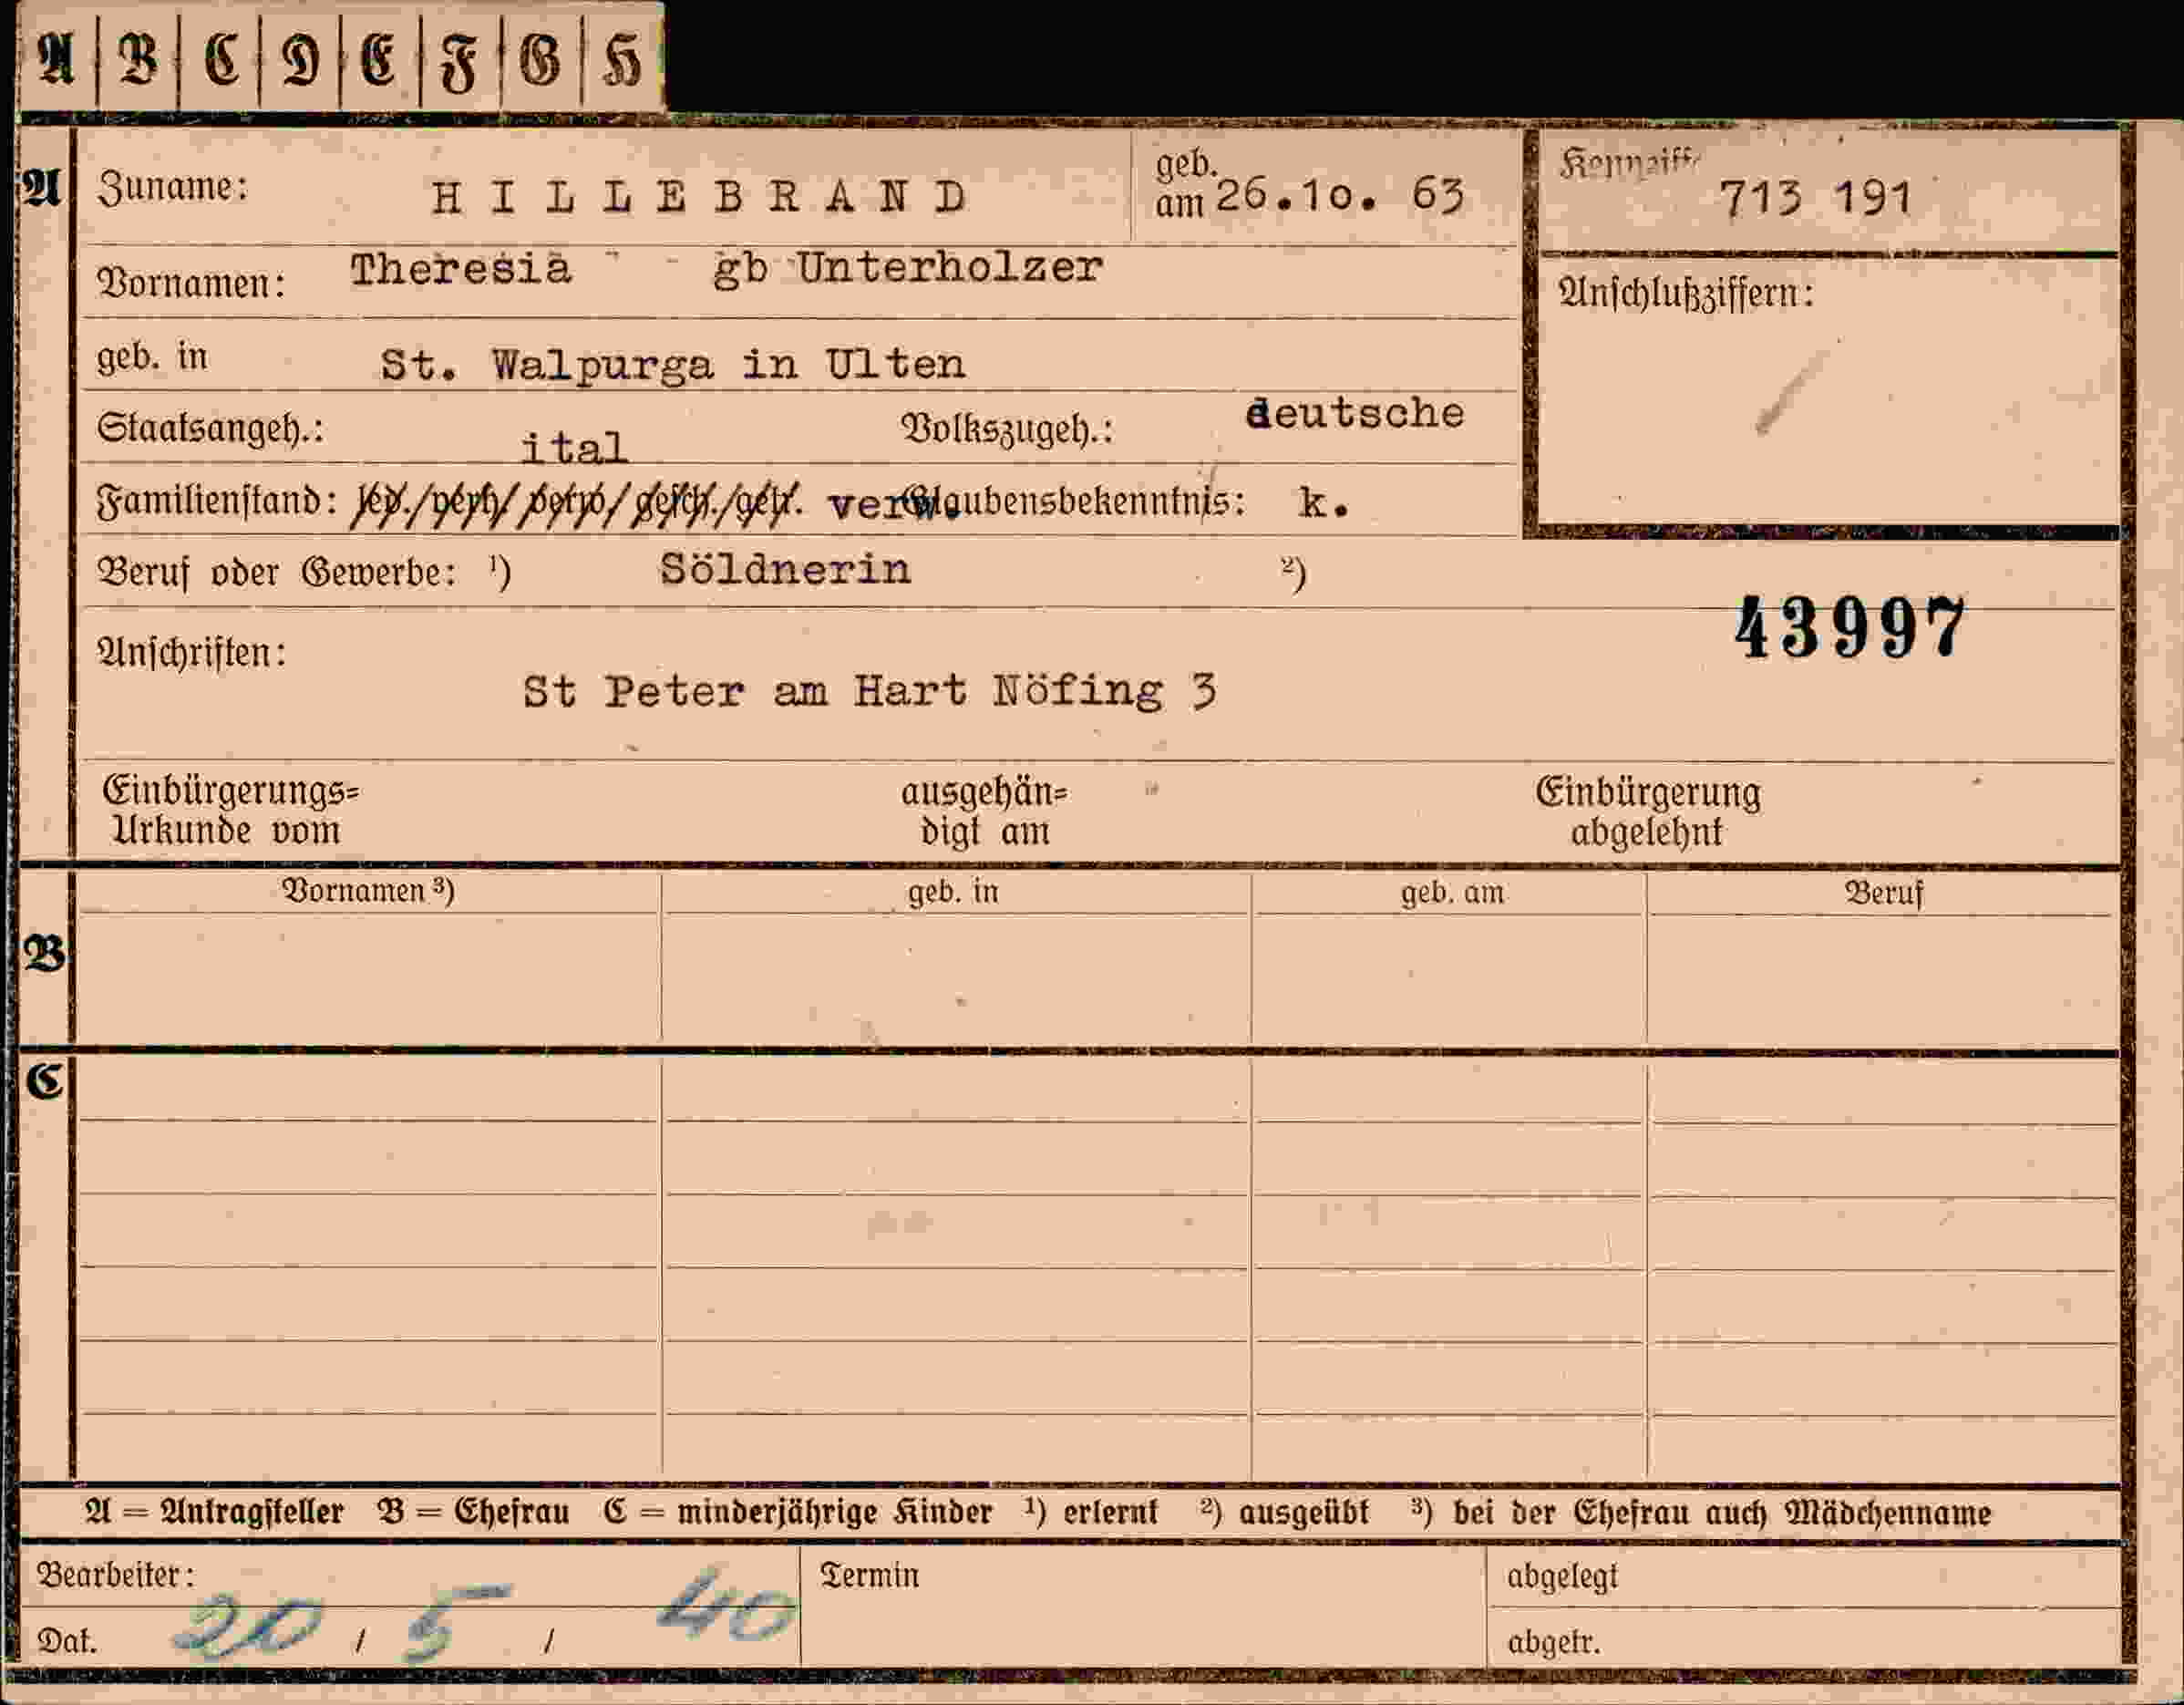 A B C D E F G H
A Zuname: HILLEBRAND geb. am 26.10. 63
Kennziff 713 191
Vornamen: Theresia gb Unterholzer
Anschlußziffern:
geb. in St. Walpurga in Ulten
Staatsangeh.: ital Volkszugeh.: deutsche
Familienstand: led./verh/verw/gesch./getr. verw. Glaubensbekenntnis: k.
Beruf oder Gewerbe: ¹) Söldnerin ²)
43997
Anschriften:
St Peter am Hart Nöfing 3
Einbürgerungs= ausgehän= Einbürgerung
Urkunde vom digt am abgelehnt
Vornamen ³) geb. in geb. am Beruf
B
C
A = Antragsteller B = Ehefrau C = minderjährige Kinder ¹) erlernt ²) ausgeübt ³) bei der Ehefrau auch Mädchenname
Bearbeiter: Termin abgelegt
Dat. 20 / 5 / 40 abgetr.